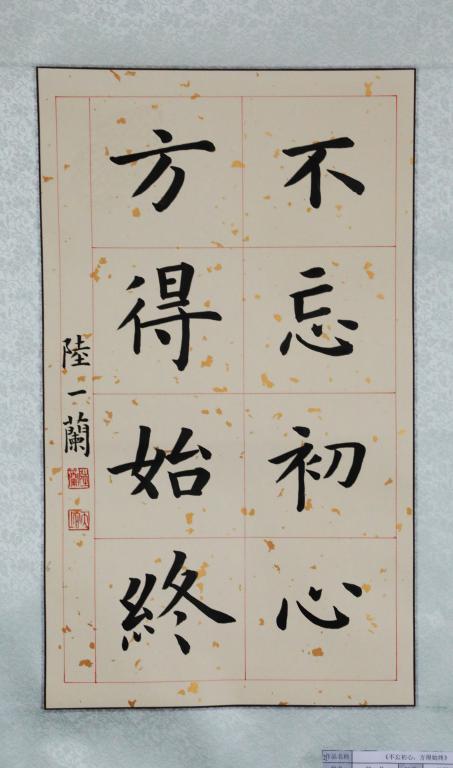 不忘初心
方得始終
陸一蘭
作品名稱 《不忘初心，方得始終》